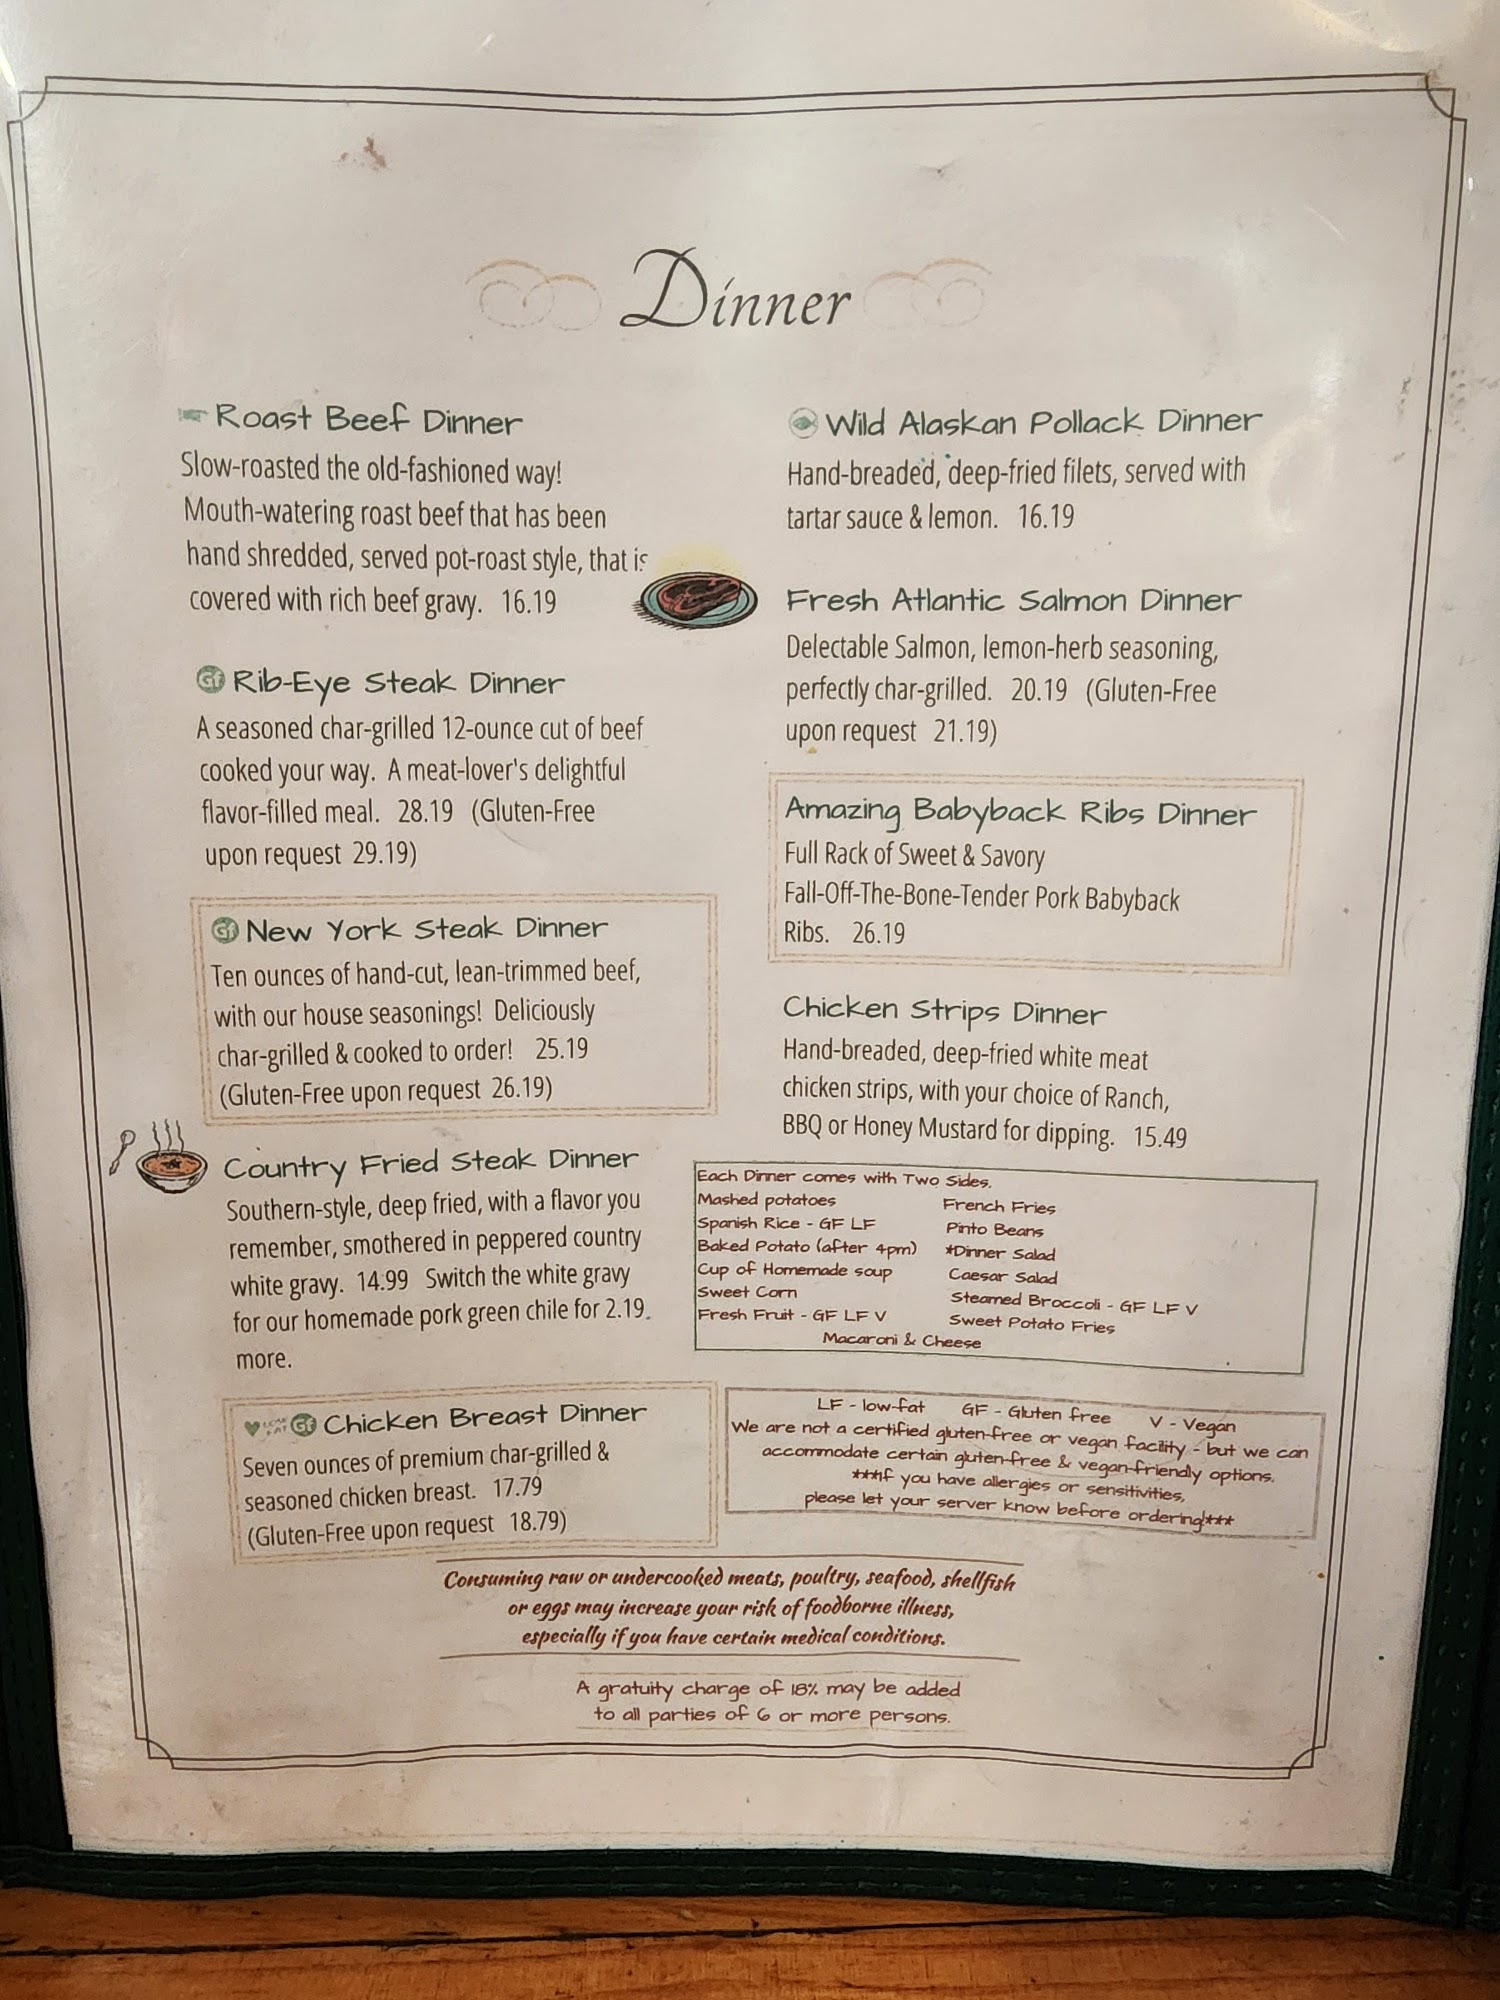 Dinner
Roast Beef Dinner
Slow-roasted the old-fashioned way!
Mouth-watering roast beef that has been
hand shredded, served pot-roast style, that is
covered with rich beef gravy. 16.19
Gf Rib-Eye Steak Dinner
A seasoned char-grilled 12-ounce cut of beef
cooked your way. A meat-lover's delightful
flavor-filled meal. 28.19 (Gluten-Free
upon request 29.19)
Gf New York Steak Dinner
Ten ounces of hand-cut, lean-trimmed beef,
with our house seasonings! Deliciously
char-grilled & cooked to order! 25.19
(Gluten-Free upon request 26.19)
Country Fried Steak Dinner
Southern-style, deep fried, with a flavor you
remember, smothered in peppered country
white gravy. 14.99 Switch the white gravy
for our homemade pork green chile for 2.19
more.
Gf Chicken Breast Dinner
Seven ounces of premium char-grilled &
seasoned chicken breast. 17.79
(Gluten-Free upon request 18.79)
Wild Alaskan Pollack Dinner
Hand-breaded, deep-fried filets, served with
tartar sauce & lemon. 16.19
Fresh Atlantic Salmon Dinner
Delectable Salmon, lemon-herb seasoning,
perfectly char-grilled. 20.19 (Gluten-Free
upon request 21.19)
Amazing Babyback Ribs Dinner
Full Rack of Sweet & Savory
Fall-Off-The-Bone-Tender Pork Babyback
Ribs. 26.19
Chicken Strips Dinner
Hand-breaded, deep-fried white meat
chicken strips, with your choice of Ranch,
BBQ or Honey Mustard for dipping. 15.49
Each Dinner comes with Two Sides.
Mashed potatoes French Fries
Spanish Rice - GF LF Pinto Beans
Baked Potato (after 4pm) *Dinner Salad
Cup of Homemade soup Caesar Salad
Sweet Corn Steamed Broccoli - GF LF V
Fresh Fruit - GF LF V Sweet Potato Fries
Macaroni & Cheese
LF - low-fat GF - Gluten free V - Vegan
We are not a certified gluten-free or vegan facility - but we can
accommodate certain gluten-free & vegan-friendly options.
***If you have allergies or sensitivities,
please let your server know before ordering!***
Consuming raw or undercooked meats, poultry, seafood, shellfish
or eggs may increase your risk of foodborne illness,
especially if you have certain medical conditions.
A gratuity charge of 18% may be added
to all parties of 6 or more persons.